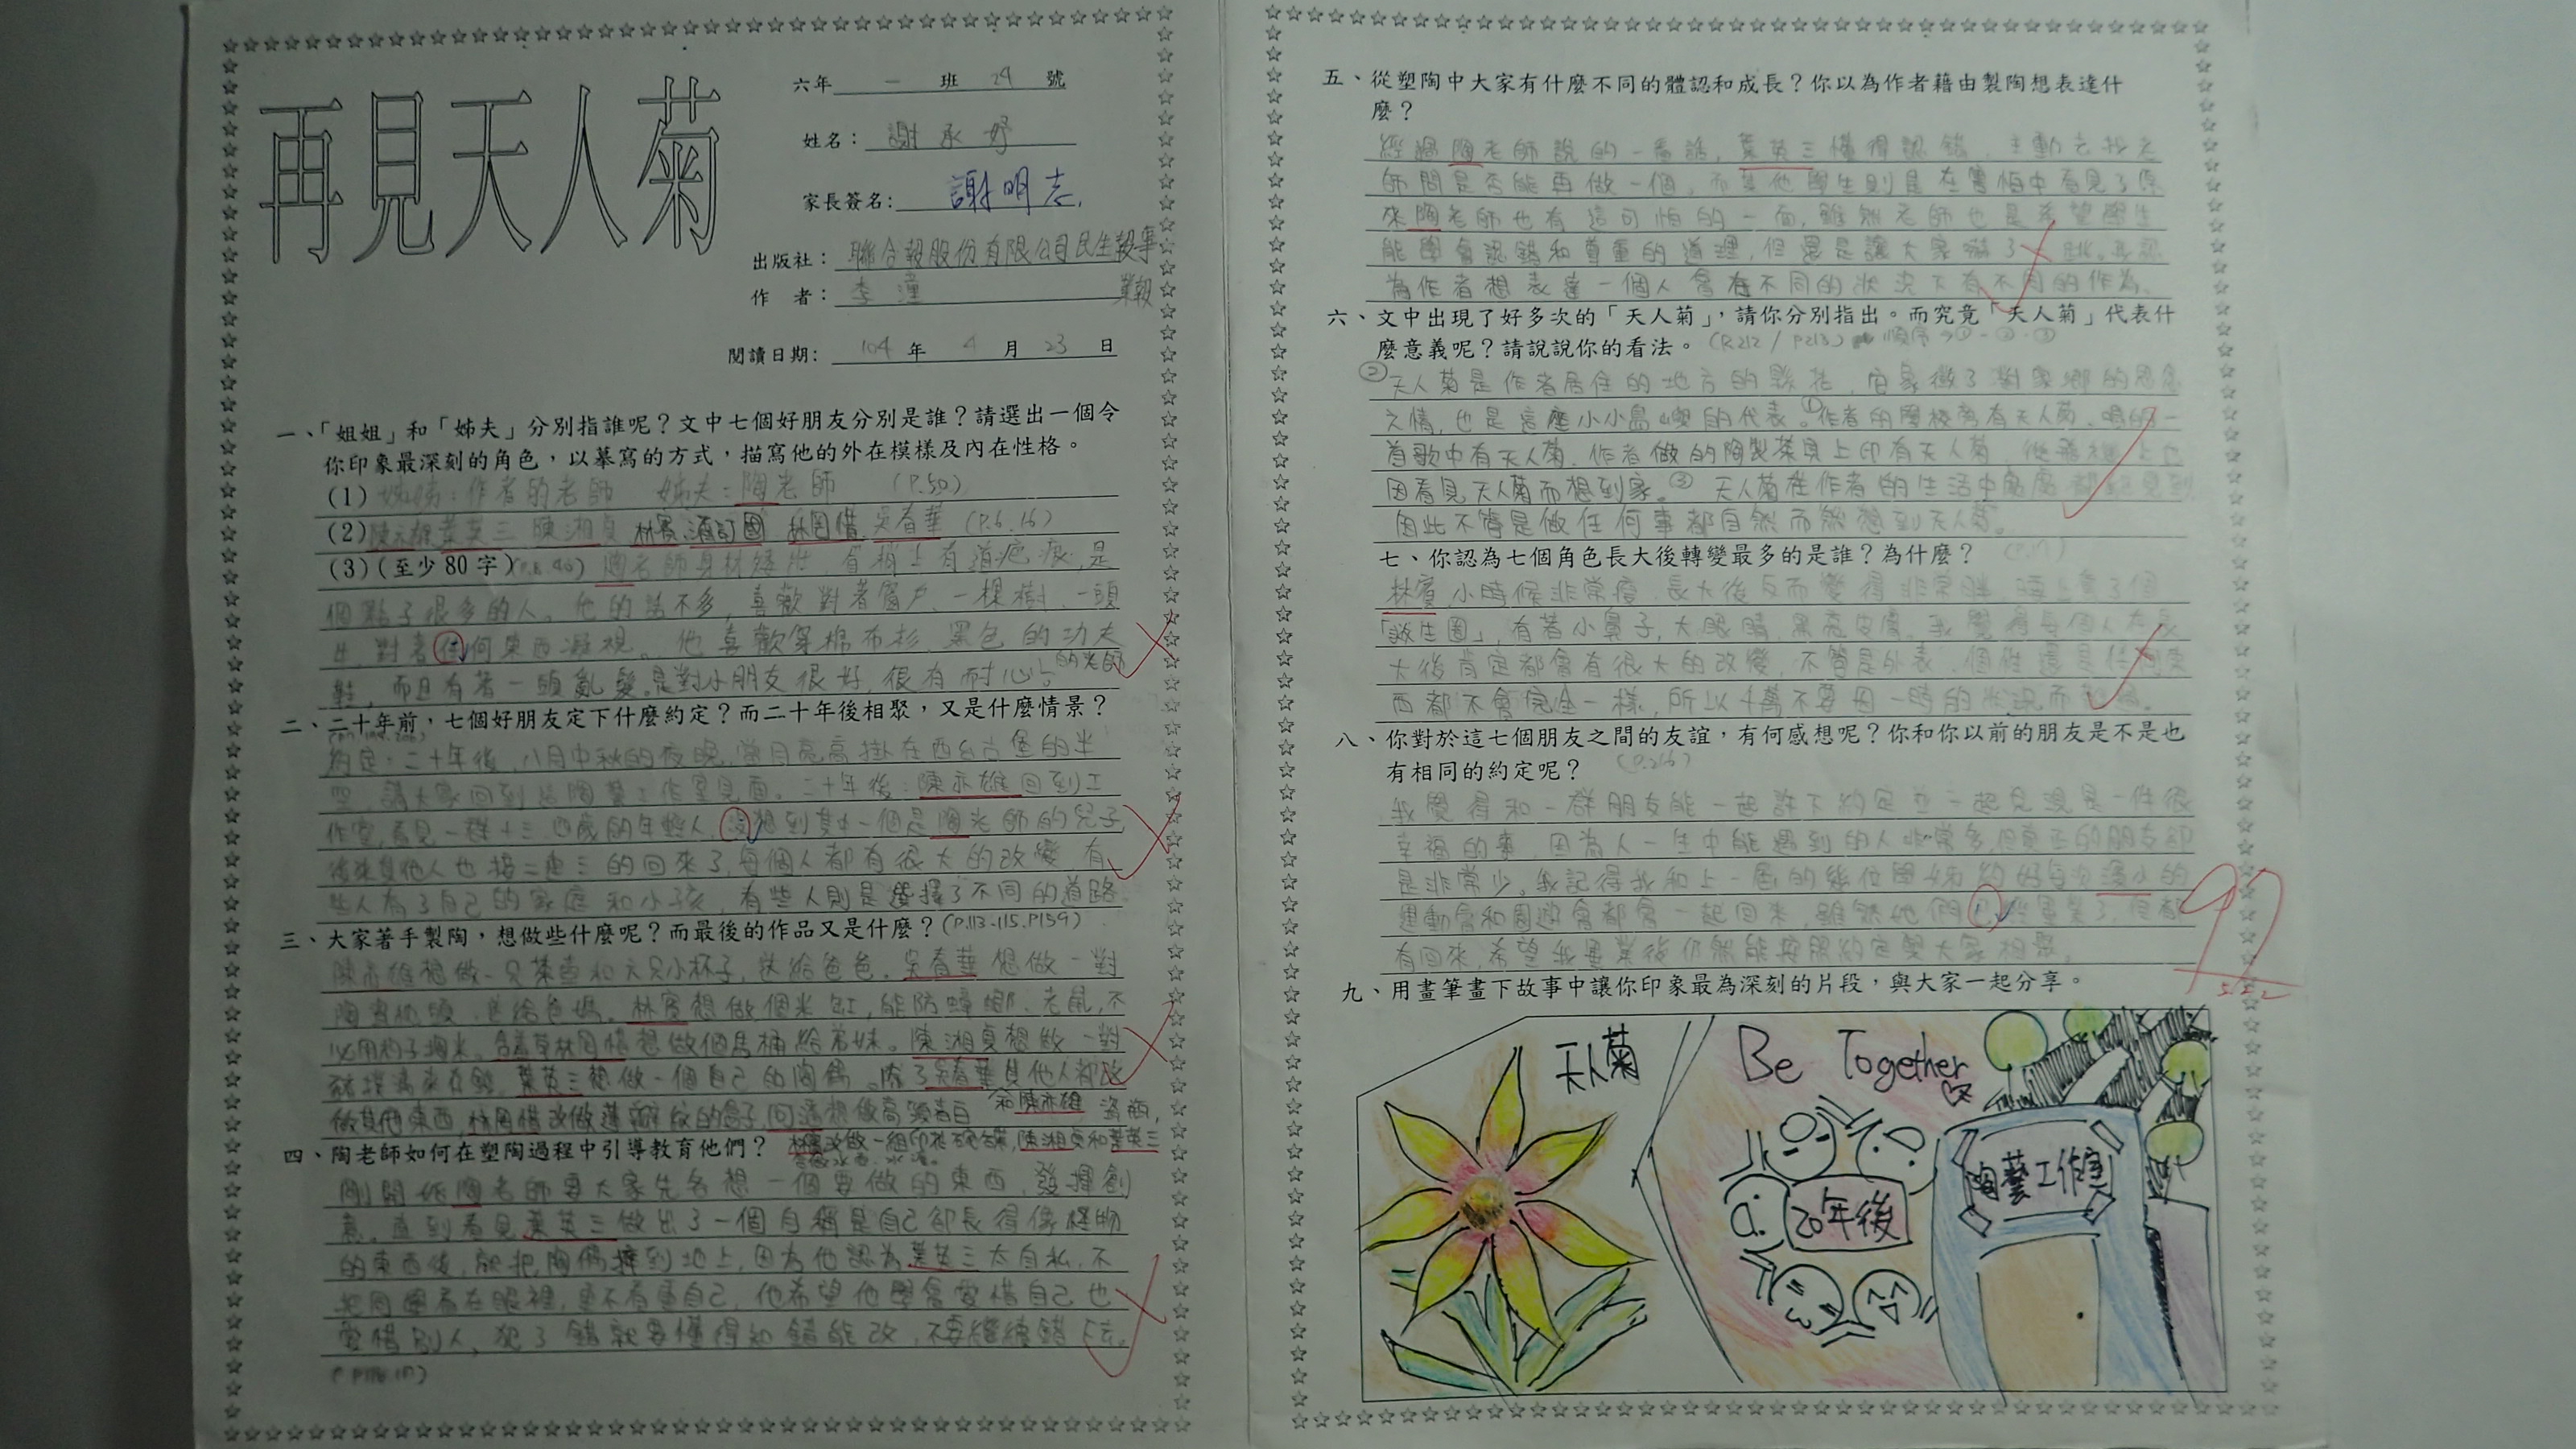 再見天人菊
六年 一 班 29 號
姓名：謝承妤
家長簽名：謝明志
出版社：聯合報股份有限公司民生報事業報
作 者：李潼
閱讀日期：104 年 4 月 23 日
一、「姐姐」和「姊夫」分別指誰呢？文中七個好朋友分別是誰？請選出一個令
你印象最深刻的角色，以摹寫的方式，描寫他的外在模樣及內在性格。
(1) 姊姊：作者的老師 姊夫：陶老師 (P.50)
(2) 陳亦雄 葉英三 陳湘貞 林賓 潘訂國 林罔惜 吳春華 (P.6.16)
(3) (至少 80 字) 陶老師身材矮壯，眉稍上有道疤痕，是
個點子很多的人。他的話不多，喜歡對著窗戶、一棵樹、一頭
牛，對著任何東西凝視。他喜歡穿棉布衫、黑色的功夫
鞋，而且有著一頭亂髮。是對小朋友很好，很有耐心的老師
二、二十年前，七個好朋友定下什麼約定？而二十年後相聚，又是什麼情景？
約定：二十年後，八月中秋的夜晚，當月亮高掛在西台古堡的半
空，請大家回到這陶藝工作室見面。二十年後：陳亦雄回到工
作室，看見一群十三、四歲的年輕人，沒想到其中一個是陶老師的兒子，
後來其他人也接二連三的回來了，每個人都有很大的改變，有
些人有了自己的家庭和小孩，有些人則是選擇了不同的道路。
三、大家著手製陶，想做些什麼呢？而最後的作品又是什麼？(P.113-115.P159)
陳亦雄想做一只茶壺和六只小杯子，送給爸爸。吳春華想做一對
林賓想做個米缸，能防蟑螂、老鼠，不
林罔惜想做個馬桶給弟妹。陳湘貞想做一對
葉英三想做一個自己的陶偶。除了吳春華其他人都改
做其他東西，林罔惜改做蓮瓣紋的盒子，
和陳亦雄
四、陶老師如何在塑陶過程中引導教育他們？
剛開始陶老師要大家先各想一個要做的東西，發揮創
意。直到看見葉英三做出了一個自稱是自己卻長得像怪物
的東西後，就把陶偶摔到地上，因為他認為葉英三太自私，不
把同學看在眼裡，更不看重自己，他希望他學會愛惜自己也
愛惜別人，犯了錯就要懂得知錯能改，不要繼續錯下去。
五、從塑陶中大家有什麼不同的體認和成長？你以為作者藉由製陶想表達什
麼？
經過陶老師說的一番話，葉英三懂得認錯，主動去找老
師問是否能再做一個，而其他學生則是在害怕中看見了原
來陶老師也有這可怕的一面，雖然老師也是希望學生
能學會認錯和尊重的道理，但還是讓大家嚇了一跳。我認
為作者想表達一個人會在不同的狀況下有不同的作為。
六、文中出現了好多次的「天人菊」，請你分別指出。而究竟「天人菊」代表什
麼意義呢？請說說你的看法。(P.212 / P213) 順序→①-②-③
②天人菊是作者居住的地方的縣花，它象徵了對家鄉的思念
之情，也是這座小小島嶼的代表。①作者的學校旁有天人菊，唱的一
首歌中有天人菊，作者做的陶製茶具上印有天人菊，從飛機上也
因看見天人菊而想到家。③天人菊在作者的生活中處處
因此不管是做任何事都自然而然想到天人菊。
七、你認為七個角色長大後轉變最多的是誰？為什麼？
林賓，小時候非常瘦，長大後反而變得非常胖，
「救生圈」，有著小鼻子，大眼睛，黑亮皮膚。我覺得每個人在長
大後肯定都會有很大的改變，不管是外表、個性還是任何東
西都不會完全一樣，所以千萬不要因一時的狀況而
八、你對於這七個朋友之間的友誼，有何感想呢？你和你以前的朋友是不是也
有相同的約定呢？ (P.216)
我覺得和一群朋友能一起許下約定並一起兌現是一件很
幸福的事，因為人一生中能遇到的人非常多，但真正的朋友卻
是非常少。我記得我和上一屆的幾位學姊約好每次
運動會和園遊會都會一起回來，雖然她們已經畢業了但都
有回來，希望我畢業後仍然能按照約定與大家相聚。
九、用畫筆畫下故事中讓你印象最為深刻的片段，與大家一起分享。
天人菊
Be Together
20年後
陶藝工作室
92
5.22